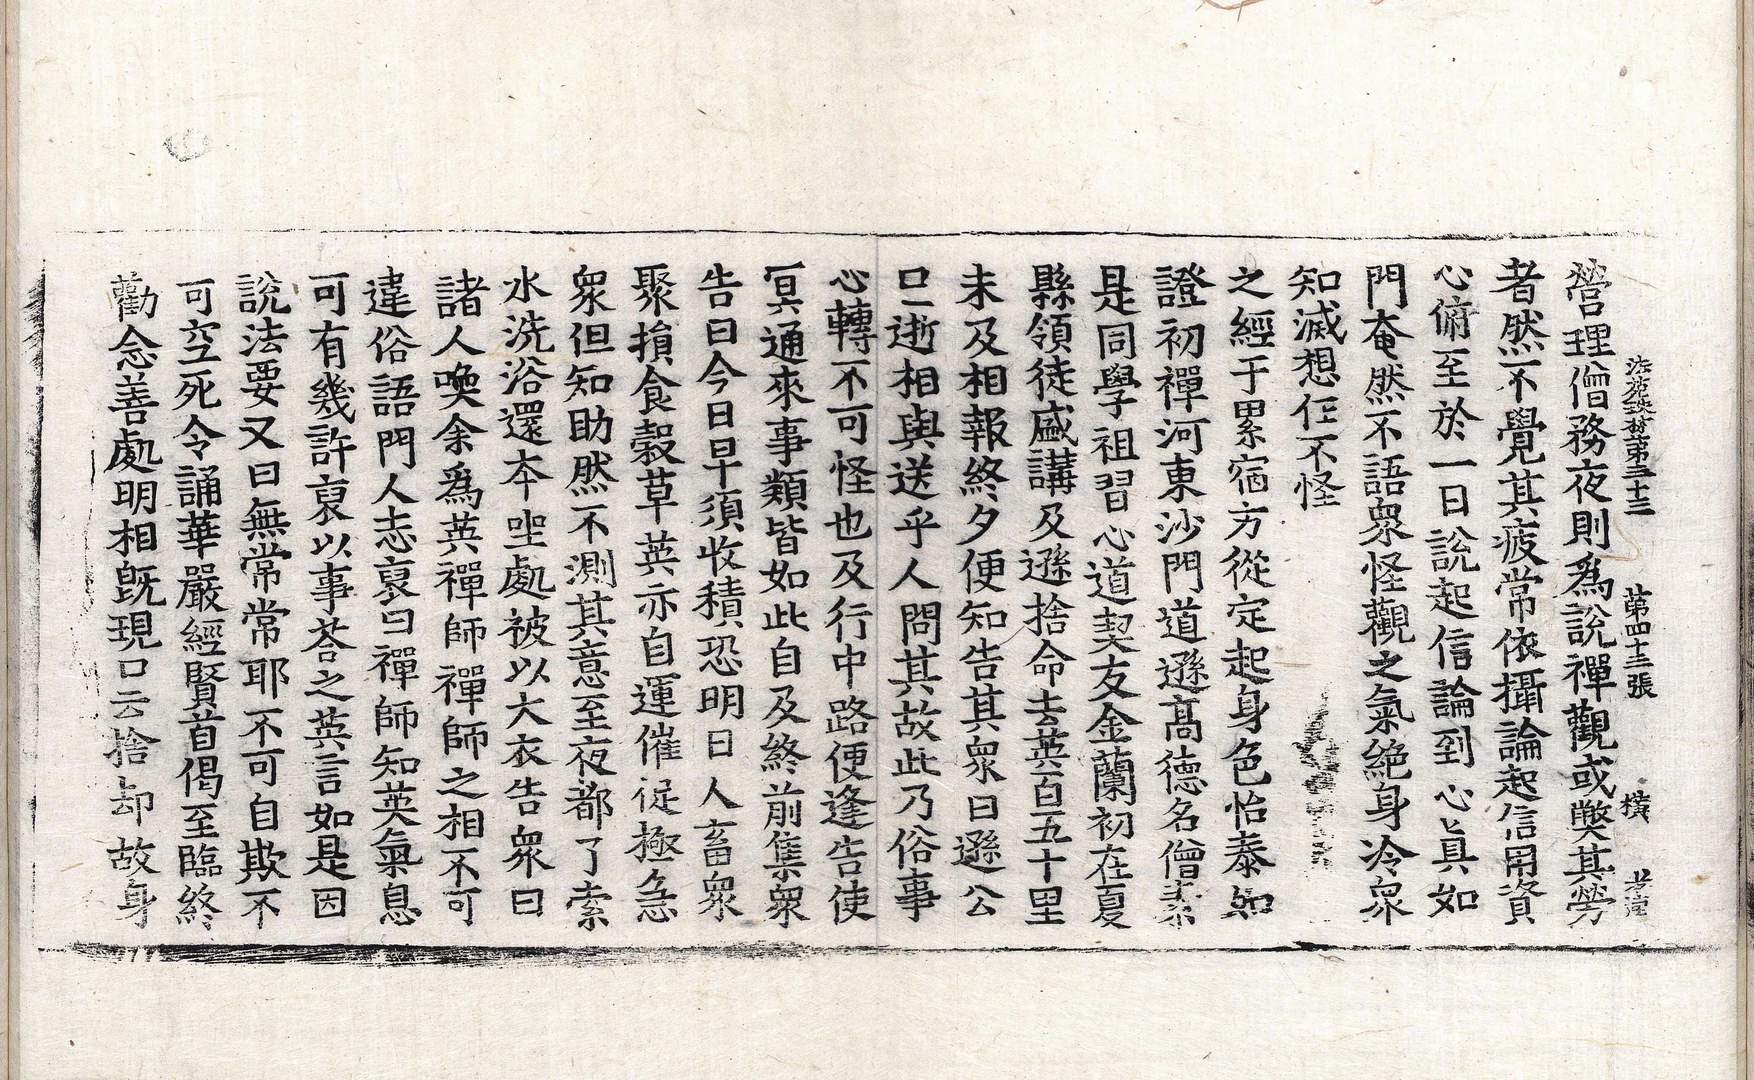 法苑珠林第三十三 第四十三張 橫
營理僧務夜則爲說禪觀或弊其勞
者然不覺其疲常依攝論起信用資
心俯至於一日說起信論到心眞如
門奄然不語衆怪觀之氣絶身冷衆
知滅想任不怪
之經于累宿方從定起身色怡泰如
證初禪河東沙門道遜高德名僧素
是同學祖習心道契友金蘭初在夏
縣領徒盛講及遜捨命去英百五十里
未及相報終夕便知告其衆曰遜公
已逝相與送乎人問其故此乃俗事
心轉不可怪也及行中路便逢告使
冥通來事類皆如此自及終前集衆
告曰今日早須收積恐明日人畜衆
聚損食穀草英亦自運催促極急
衆但知助然不測其意至夜都了索
水洗浴還本坐處被以大衣告衆曰
諸人喚余爲英禪師禪師之相不可
違俗語門人志褒曰禪師知英氣息
可有幾許裒以事荅之英言如是因
說法要又曰無常常耶不可自欺不
可空死令誦華嚴經賢首偈至臨終
勸念善處明相旣現口云捨却故身